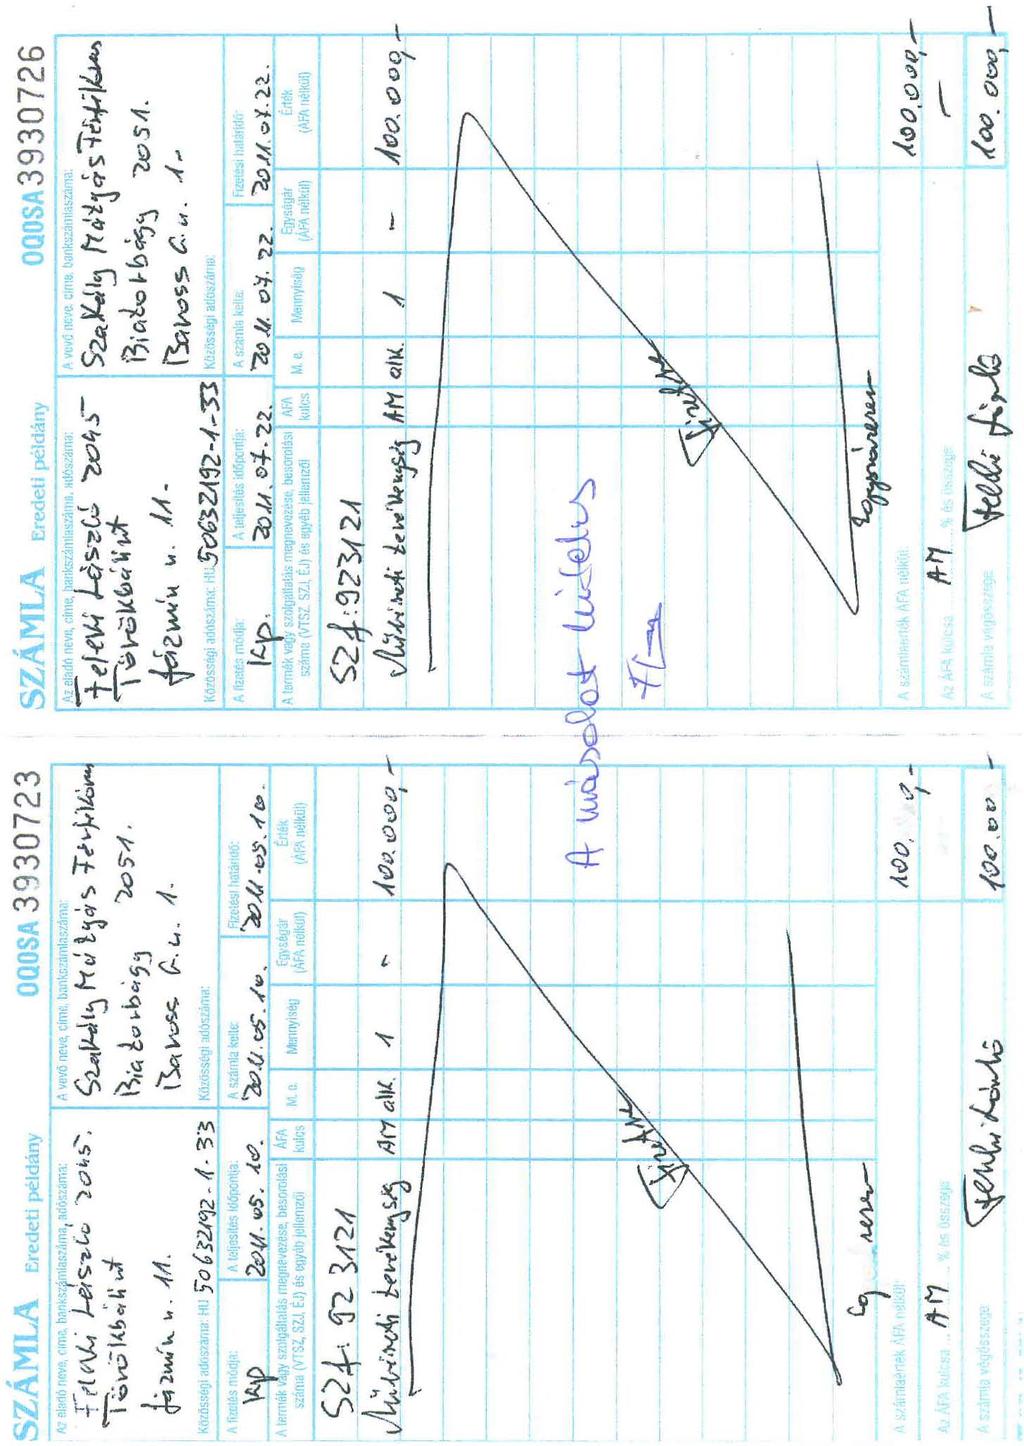 SZÁMLA Eredeti példány 0Q0SA3930723
Az eladó neve, címe, bankszámlaszáma, adószáma:
Feleki László 2045.
Törökbálint
Jázmin u. 11.
Közösségi adószáma: HU 50632192-1-33
A vevő neve, címe, bankszámlaszáma:
Szakály Mátyás Férfikórus
Biatorbágy 2051.
Baross G. u. 1.
Közösségi adószáma:
A fizetés módja: A teljesítés időpontja: A számla kelte: Fizetési határidő:
Kp 2011.05.10. 2011.05.10. 2011.05.10.
A termék vagy szolgáltatás megnevezése, besorolási
száma (VTSZ, SZJ, ÉJ) és egyéb jellemzői
ÁFA kulcs M. e. Mennyiség Egységár (ÁFA nélkül) Érték (ÁFA nélkül)
SZJ: 923121
Művészeti tevékenység AM alk. 1 - 100.000,-
Fizetve
A számlaérték ÁFA nélkül:
Az ÁFA kulcsa ... % és összege
AM
A számla végösszege
SZÁMLA Eredeti példány 0Q0SA3930726
Az eladó neve, címe, bankszámlaszáma, adószáma:
Feleki László 2045
Törökbálint
Jázmin u. 11.
Közösségi adószáma: HU 50632192-1-33
A vevő neve, címe, bankszámlaszáma:
Szakály Mátyás Férfikórus
Biatorbágy 2051.
Baross G. u. 1.
Közösségi adószáma:
A fizetés módja: A teljesítés időpontja: A számla kelte: Fizetési határidő:
Kp. 2011.07.22. 2011.07.22. 2011.07.22.
A termék vagy szolgáltatás megnevezése, besorolási
száma (VTSZ, SZJ, ÉJ) és egyéb jellemzői
ÁFA kulcs M. e. Mennyiség Egységár (ÁFA nélkül) Érték (ÁFA nélkül)
SZJ: 923121
Művészeti tevékenység AM alk. 1 - 100.000,-
A másolat hiteles
Fizetve
Egyszázezer
A számlaérték ÁFA nélkül: 100.000,-
Az ÁFA kulcsa ... % és összege
AM -
A számla végösszege 100.000,-
Feleki László